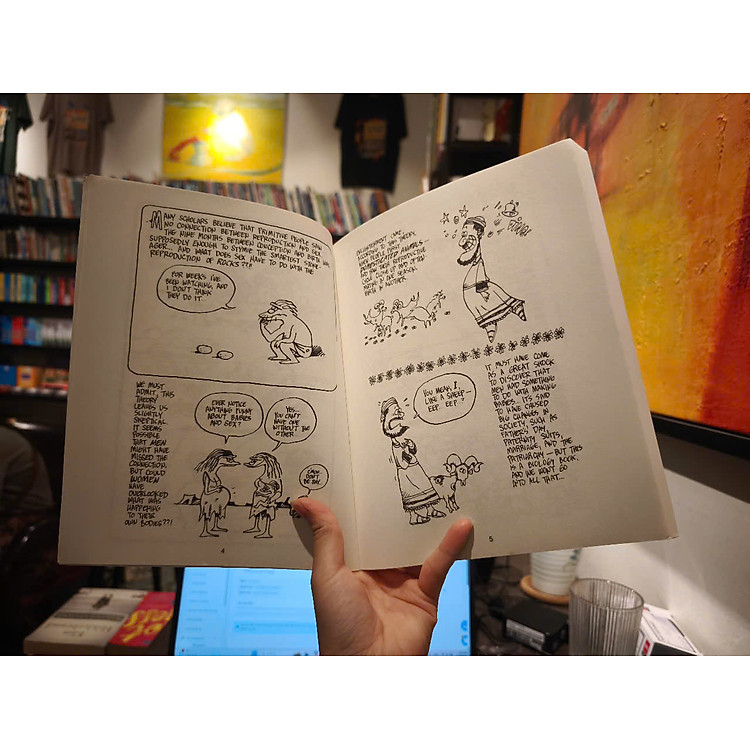 MANY SCHOLARS BELIEVE THAT PRIMITIVE PEOPLE SAW
NO CONNECTION BETWEEN REPRODUCTION AND SEX.
THE NINE MONTHS BETWEEN CONCEPTION AND BIRTH WERE
SUPPOSEDLY ENOUGH TO STYMIE THE SMARTEST STONE-
AGER... AND WHAT DOES SEX HAVE TO DO WITH THE
REPRODUCTION OF ROCKS??!
FOR WEEKS I'VE
BEEN WATCHING, AND
I DON'T THINK
THEY DO IT...
WE MUST
ADMIT, THIS
THEORY
LEAVES US
SLIGHTLY
SKEPTICAL.
IT SEEMS
POSSIBLE
THAT MEN
MIGHT HAVE
MISSED THE
CONNECTION,
BUT COULD
WOMEN
HAVE
OVERLOOKED
WHAT WAS
HAPPENING
TO THEIR
OWN BODIES??!
EVER NOTICE
ANYTHING FUNNY
ABOUT BABIES
AND SEX?
YES...
YOU CAN'T
HAVE ONE
WITHOUT THE
OTHER...
DON'T
BE
4
ENLIGHTENMENT CAME,
ACCORDING TO THIS THEORY,
WHEN PEOPLE FIRST
DOMESTICATED ANIMALS
AND SAW THEIR REPRODUCTIVE
WAYS CLOSE UP AND OFTEN:
MATING IN ONE SEASON,
BIRTH IN ANOTHER.
YOU MEAN, I,
LIKE A SHEEP--
EEP EEP...
IT MUST HAVE COME
AS A GREAT SHOCK
TO DISCOVER THAT
MEN HAD SOMETHING
TO DO WITH MAKING
BABIES. IT'S SAID
TO HAVE CAUSED
BIG CHANGES IN
SOCIETY, SUCH AS
FATHER'S DAY,
PATERNITY SUITS,
MARRIAGE, AND THE
PATRIARCHY — BUT THIS
IS A BIOLOGY BOOK,
AND WE WON'T GO
INTO ALL THAT...
5